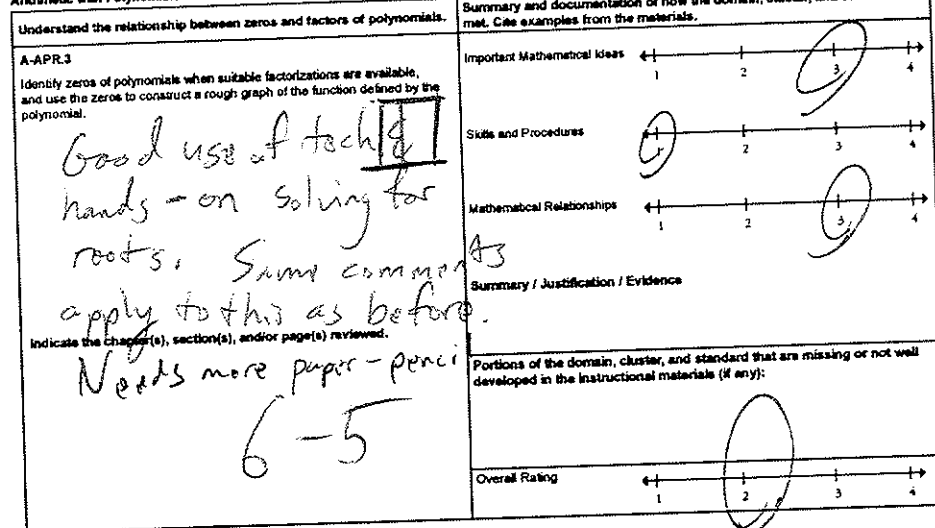 Understand the relationship between zeros and factors of polynomials.
A-APR.3
Identify zeros of polynomials when suitable factorizations are available,
and use the zeros to construct a rough graph of the function defined by the
polynomial.
Good use of tech &
hands-on solving for
roots. Same comments
apply to this as before.
Indicate the chapter(s), section(s), and/or page(s) reviewed.
Needs more paper-penci
6-5
Summary and documentation of how the domain, cluster, and
met. Cite examples from the materials.
Important Mathematical Ideas
1 2 3 4
Skills and Procedures
1 2 3 4
Mathematical Relationships
1 2 3 4
Summary / Justification / Evidence
Portions of the domain, cluster, and standard that are missing or not well
developed in the instructional materials (if any):
Overall Rating
1 2 3 4